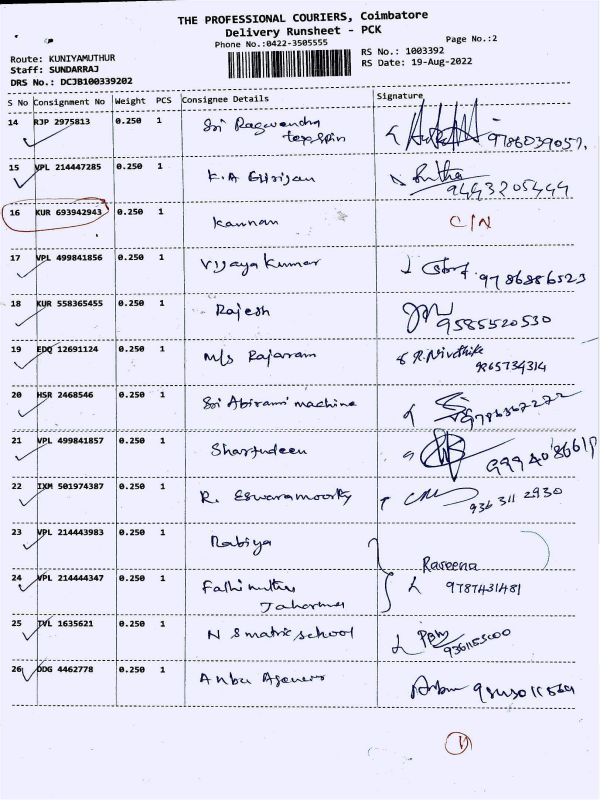 THE PROFESSIONAL COURIERS, Coimbatore
Delivery Runsheet - PCK
Phone No.:0422-3505555
Page No.:2
Route: KUNIYAMUTHUR
RS No.: 1003392
Staff: SUNDARRAJ
RS Date: 19-Aug-2022
DRS No.: DCJB100339202
S No Consignment No Weight PCS Consignee Details Signature
14 RJP 2975813 0.250 1 Sri Ragavendra
texspin 9786039057.
15 VPL 214447285 0.250 1 K.A
9443205444
16 KUR 693942943 0.250 1 Kannan C/N
17 VPL 499841856 0.250 1 Vijaya Kumar 9786886523
18 KUR 558365455 0.250 1 Rajesh
9585520530
19 EDQ 12691124 0.250 1 M/s Rajaram R.Nivethika
9865734314
20 HSR 2468546 0.250 1 Sri Abirami machine
21 VPL 499841857 0.250 1 Sharfudeen
22 IXM 501974387 0.250 1 R. Eswaramoorthy 936 311 2930
23 VPL 214443983 0.250 1 Rabiya
Raseena
24 VPL 214444347 0.250 1 Fathimuthu 9787431481
25 TVL 1635621 0.250 1 N S matric school
26 DDG 4462778 0.250 1 Anbu